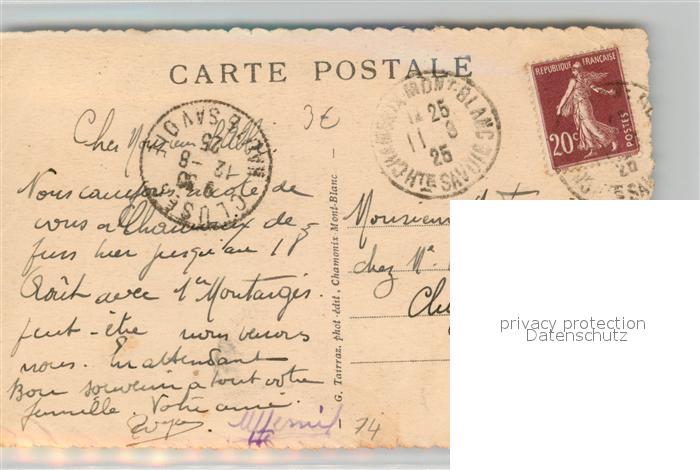 CARTE POSTALE
3€
RÉPUBLIQUE FRANÇAISE
20c
POSTES
CHAMONIX MONT-BLANC
HTE SAVOIE
25
11 8
25
CLUSES
HTE SAVOIE
12 -8
25
Cher Monsieur
Nous campons
vous a Chamonix de-
puis hier jusqu'au 18
Août avec 1er Montargis.
peut-être nous verrons
nous. En attendant
Bon souvenir a tout votre
famille. Votre ami.
G. Tairraz, phot-édit, Chamonix Mont-Blanc
Monsieur
chez Me
74
privacy protection
Datenschutz